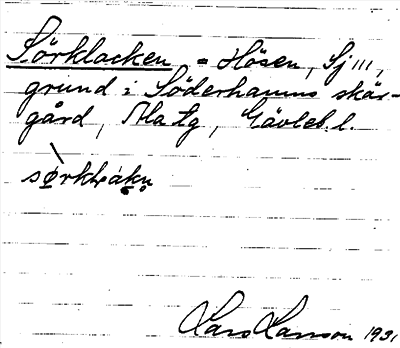 Sörklacken, = Hösen, Sj III,
grund i Söderhamns skär-
gård, Ala tg, Gävleb. l.
sørklakn̥
Lars Larsson 1931